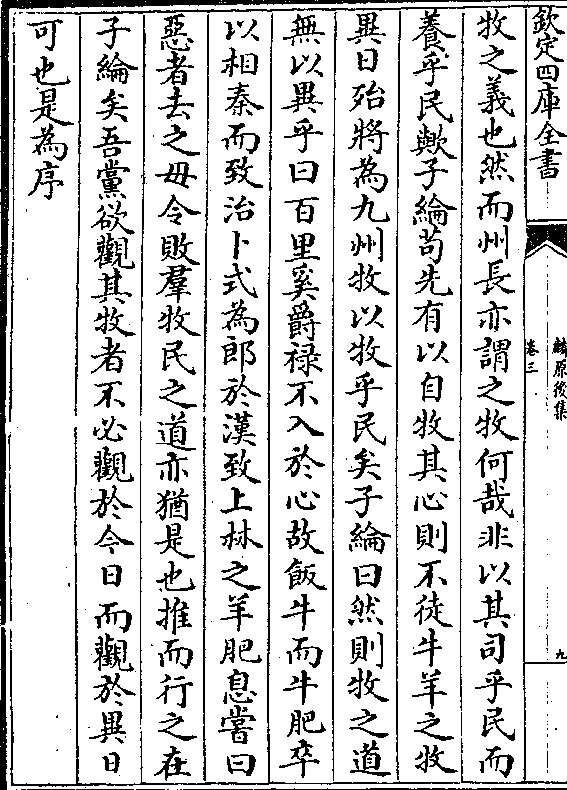 欽定四庫全書
麟原後集
卷三
九
牧之義也然而州長亦謂之牧何哉非以其司乎民而
養乎民歟子綸苟先有以自牧其心則不徒牛羊之牧
異日殆將為九州牧以牧乎民矣子綸曰然則牧之道
無以異乎曰百里奚爵禄不入於心故飯牛而牛肥卒
以相秦而致治卜式為郎於漢致上林之羊肥息嘗曰
惡者去之毋令敗羣牧民之道亦猶是也推而行之在
子綸矣吾黨欲觀其牧者不必觀於今日而觀於異日
可也是為序